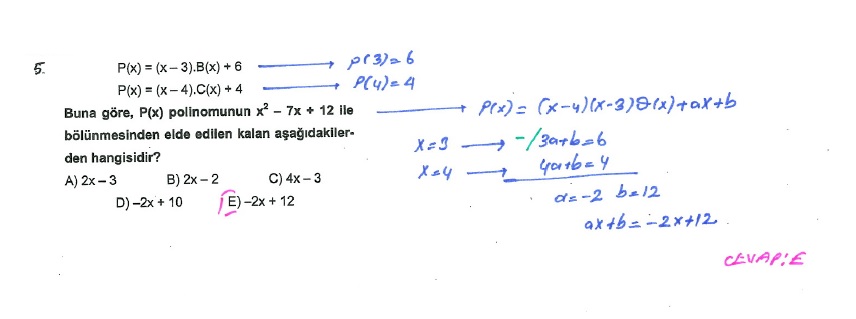 5.
P(x) = (x – 3).B(x) + 6 → P(3) = 6
P(x) = (x – 4).C(x) + 4 → P(4) = 4
Buna göre, P(x) polinomunun x² – 7x + 12 ile → P(x) = (x-4)(x-3)Q(x)+ax+b
bölünmesinden elde edilen kalan aşağıdakiler-
den hangisidir?
x=3 → -/3a+b=6
x=4 → 4a+b=4
A) 2x – 3 B) 2x – 2 C) 4x – 3
D) –2x + 10 E) –2x + 12
a=-2 b=12
ax+b=-2x+12.
CEVAP:E